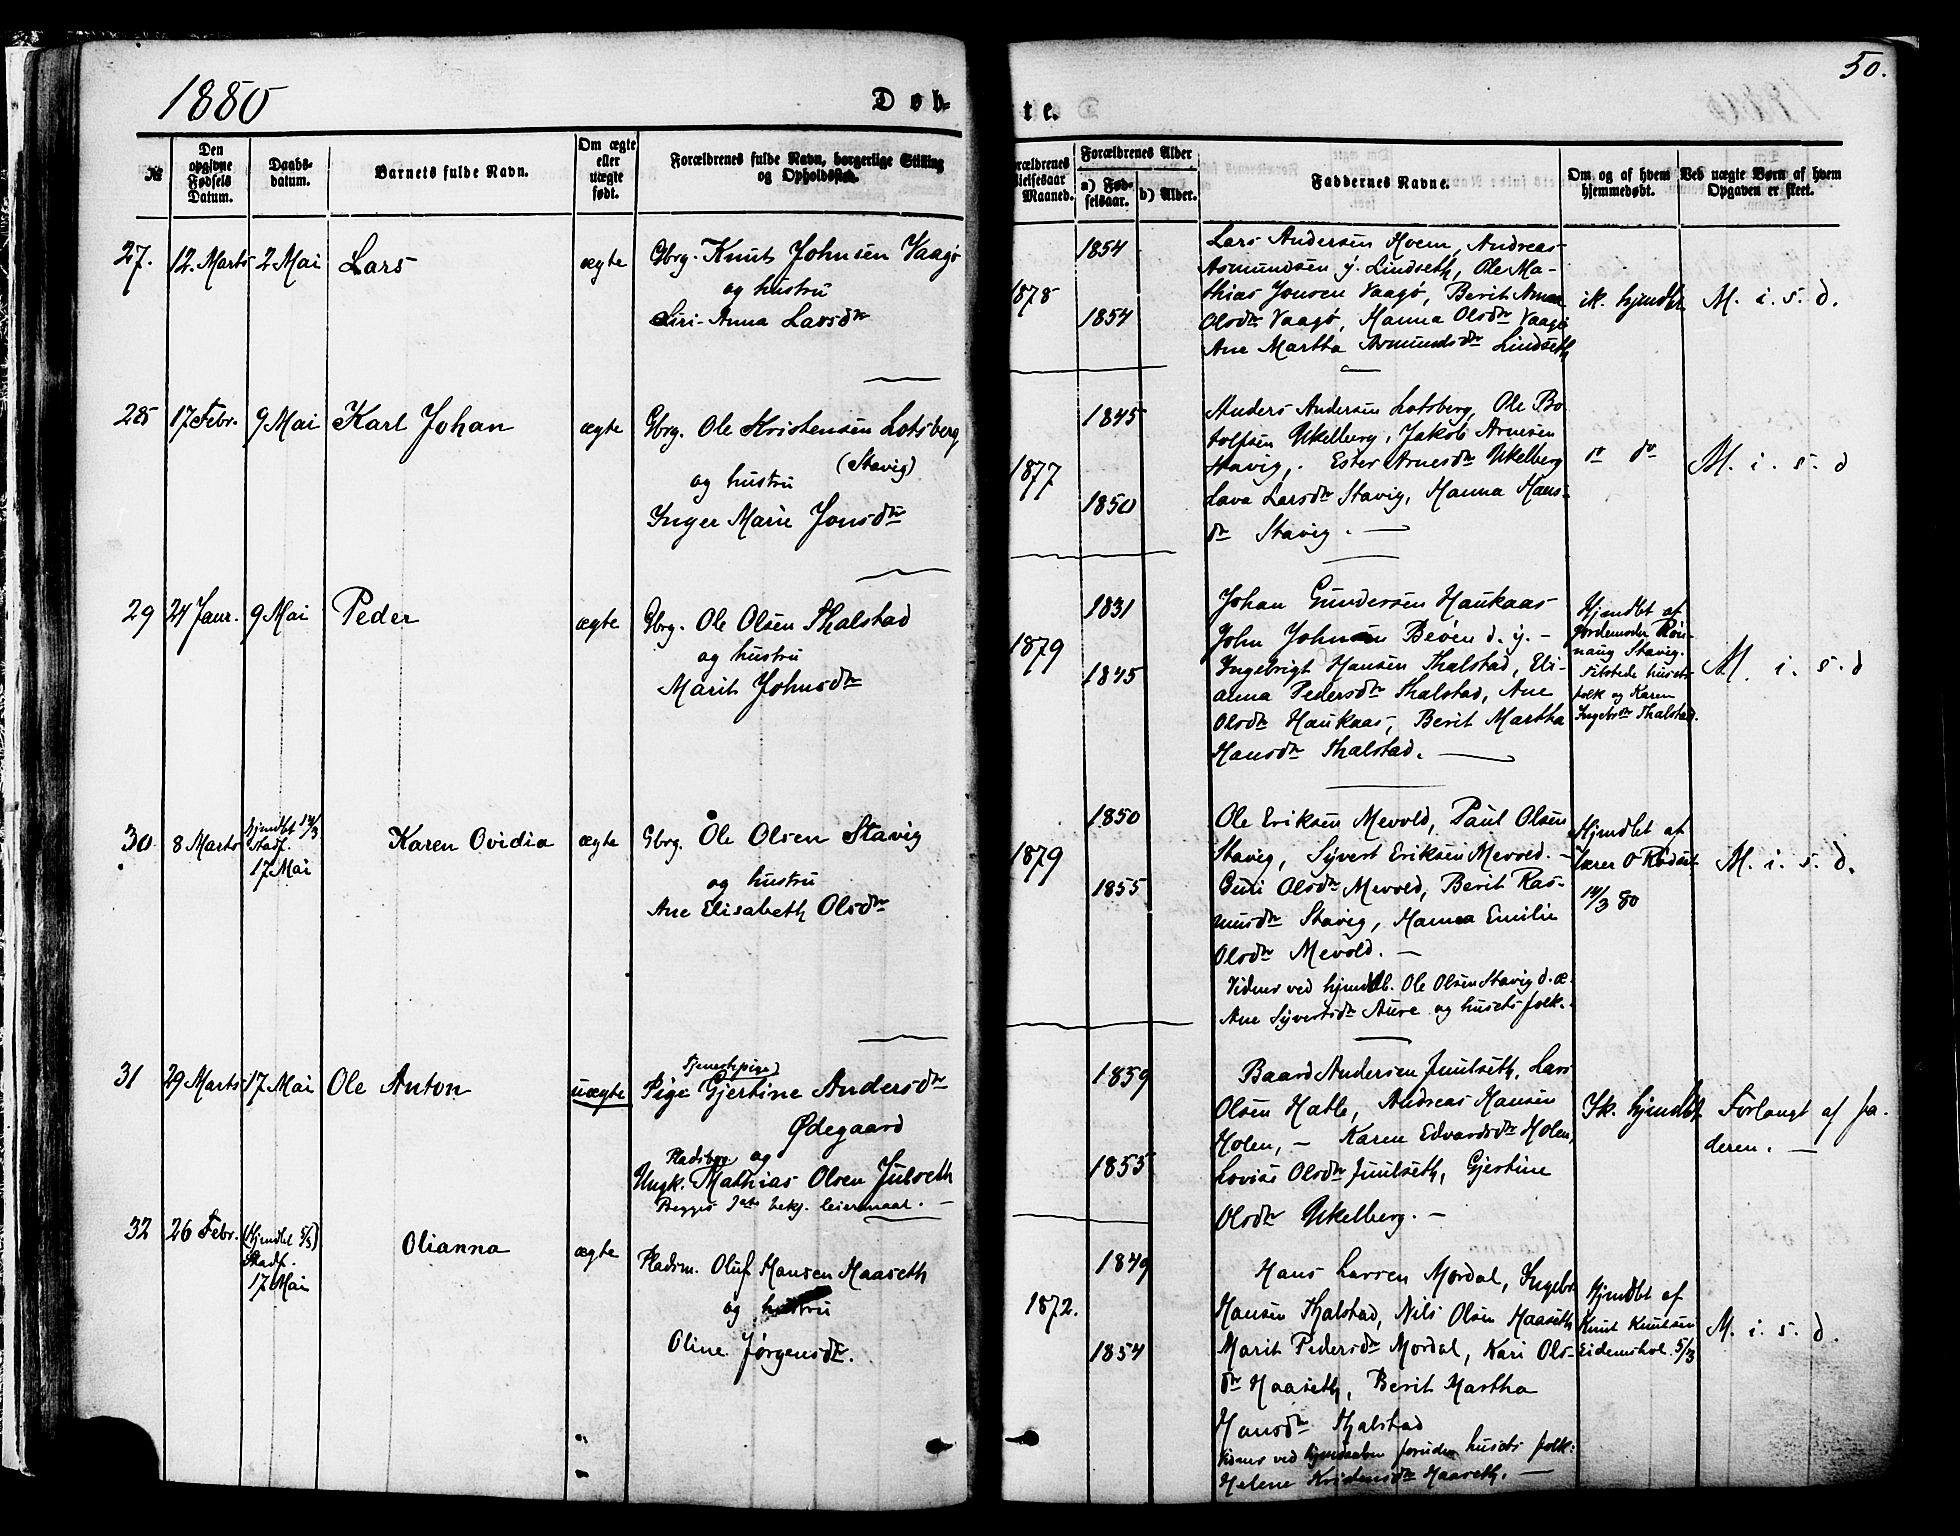 1880
Døb-
te.
50.
№
Den opgivne Fødsels Datum.
Daabs-datum.
Barnets fulde Navn.
Om ægte eller uægte født.
Forældrenes fulde Navn, borgerlige Stilling og Opholdssted.
Forældrenes Alder
a) Fødselsaar.
b) Alder.
Faddernes Navne.
Om og af hvem hjemmedøbt.
Ved uægte Børn af hvem Opgaven er skeet.
27. 12. Marts 2 Mai Lars ægte Gbrg. Knut Johnsen Vaagø
og hustru
Siri-Anna Larsdtr
1878
1854
1854
Lars Andersen Hoem, Andreas
Asmundsen y. Lindseth, Ole Ma-
thias Jonsen Vaagø, Berit Anna
Olsdtr Vaagø, Hanna Olsdtr Vaagø
Ane Martha Asmundsdtr Lindseth
ik. hjmdbt M. i. s. d.
28 17 Febr. 9 Mai Karl Johan ægte Gbrg. Ole Kristensen Lotsberg
(Stavig)
og hustru
Inger Marie Jonsdtr
1877
1845
1850
Anders Andersen Lotsberg, Ole Bo
tolfsen Ukelberg, Jakob Arnesen
Stavig,. Ester Arnesdtr Ukelberg
Lava Larsdtr Stavig, Hanna Hans-
dtr Stavig. —
do do M. i. s. d
29 24 Janr. 9 Mai Peder ægte Gbrg. Ole Olsen Thalstad
og hustru
Marit Johnsdtr
1879
1831
1845
Johan Gundersen Haukaas
John Johnsen Beøen d. y. —
Ingebrigt Hansen Thalstad, Eli-
anna Pedersdtr Thalstad, Ane
Olsdtr Haukaas, Berit Martha
Hansdtr Thalstad. —
Hjmdbt af
Jordemoder Røn-
naug Stavig.
Tilstede husets
folk og Karen
Ingebrdtr Thalstad.
M. i. s. d
30 8 Marts Hjmdbt 14/3
stadf.
17 Mai
Karen Ovidia ægte Gbrg. Ole Olsen Stavig
og hustru
Ane Elisabeth Olsdtr
1879
1850
1855
Ole Eriksen Mevold, Paul Olsen
Stavig, Syvert Eriksen Mevold. —
Guri Olsdtr Mevold, Berit Ras-
musdtr Stavig, Hanna Emilie
Olsdtr Mevold. —
Vidner ved hjmdb. Ole Olsen Stavig d. æ.
Ane Syvertsdtr Aure og husets folk.
Hjmdbt af
Lærer O Rødset
14/3 80
M. i. s. d.
31 29 Marts 17 Mai Ole Anton uægte
Tjenestepige
Pige Gjertine Andersdtr
Ødegaard
Pladsbrg. og
Ungk. Mathias Olsen Julseth
Begges 1ste bekj. leiermaal. —
1859
1855
Baard Andersen Juulseth, Lars
Olsen Hatle, Andreas Hansen
Holen, — Karen Edvardsdtr Holen,
Lovise Olsdtr Juulseth, Gjertine
Olsdtr Ukelberg. —
Ik. hjmdbt Forlangt af fa-
deren. —
32 26 Febr. (Hjmdbt 5/3)
Stadf.
17 Mai
Olianna ægte Pladsm. Oluf Hansen Haaseth
og hustru
Oline Jørgensdtr.
1872.
1849
1854
Hans Larsen Mordal, Ingebr.
Hansen Thalstad, Nils Olsen Haaseth
Marit Pedersdtr Mordal, Kari Ols-
dtr Haaseth, Berit Martha
Hansdtr Thjalstad
Vidner ved hjmdaaben foruden husets folk:
Helene Kristensdtr Haaseth. —
Hjmdbt af
Knut Knutsen
Eidemshol. 5/3
M. i. s. d.